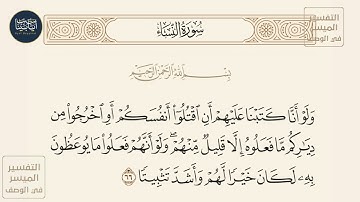 سُورَةُ النِّسَاءِ
بِسْمِ اللَّهِ الرَّحْمَٰنِ الرَّحِيمِ
وَلَوْ أَنَّا كَتَبْنَا عَلَيْهِمْ أَنِ اقْتُلُوا أَنفُسَكُمْ أَوِ اخْرُجُوا مِن
دِيَارِكُم مَّا فَعَلُوهُ إِلَّا قَلِيلٌ مِّنْهُمْ ۖ وَلَوْ أَنَّهُمْ فَعَلُوا مَا يُوعَظُونَ
بِهِ لَكَانَ خَيْرًا لَّهُمْ وَأَشَدَّ تَثْبِيتًا ٦٦
التفسير
الميسر
في الوصف
التفسير
الميسر
في الوصف